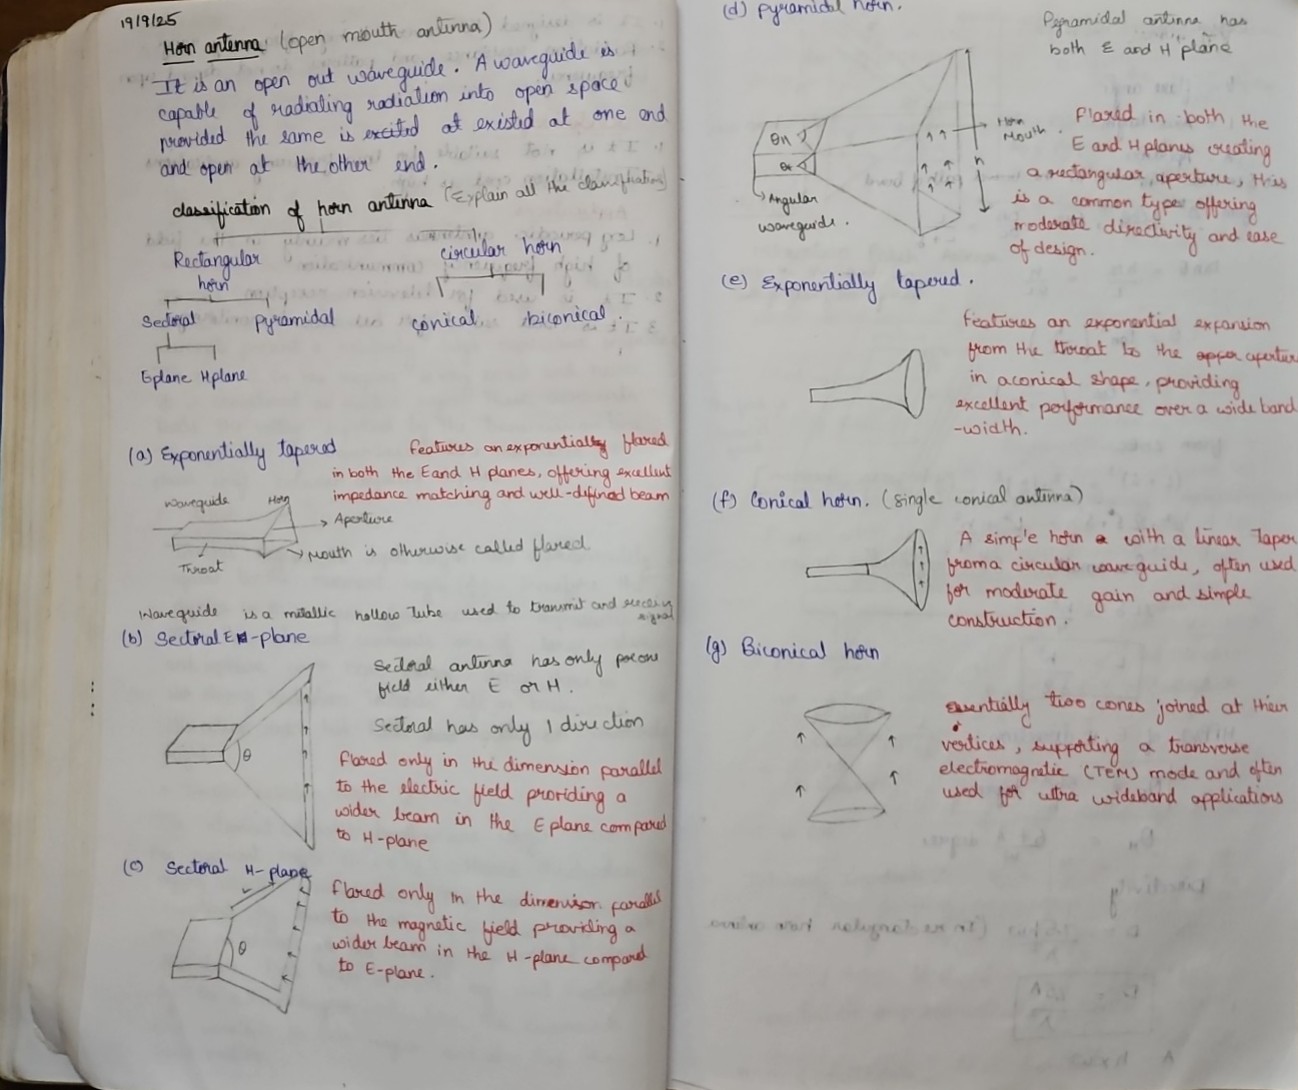 19/9/25
Horn antenna (open mouth antinna)
It is an open out waveguide. A waveguide is
capable of radiating radiation into open space
provided the same is excited at existed at one end
and open at the other end.
classification of horn antinna (Explain all the classification)
Rectangular
horn
circular horn
Sectoral pyramidal conical biconical.
Eplane Hplane
(a) Exponentially tapered
Features an exponentially flared
in both the E and H planes, offering excellent
impedance matching and well-difined beam
Waveguide Horn
Aperture
Mouth is otherwise called flared
Throat
Waveguide is a mitallic hollow Tube used to transmit and
signal
(b) Sectoral E-plane
Sectoral antinna has only
field either E or H.
Sectoral has only 1 direction
θ
flared only in the dimension parallel
to the electric field providing a
wider beam in the E plane compared
to H-plane
(c) Sectoral H-plane
θ
flared only in the dimension parallel
to the magnetic field providing a
wider beam in the H-plane compared
to E-plane.
(d) pyramidal horn.
Pyramidal antinna has
both E and H plane
θH
θE
Horn
Mouth
h
Angular
waveguide.
Flared in both the
E and H planes creating
a rectangular aperture, this
is a common type offering
moderate directivity and ease
of design.
(e) Exponentially tapered.
Features an exponential expansion
from the throat to the aperture
in a conical shape, providing
excellent performance over a wide band
-width.
(f) Conical horn. (single conical antinna)
A simple horn with a linear Taper
from a circular waveguide, often used
for moderate gain and simple
construction.
(g) Biconical horn
essentially two cones joined at their
vertices, supporting a transverse
electromagnetic (TEM) mode and often
used for ultra wideband applications